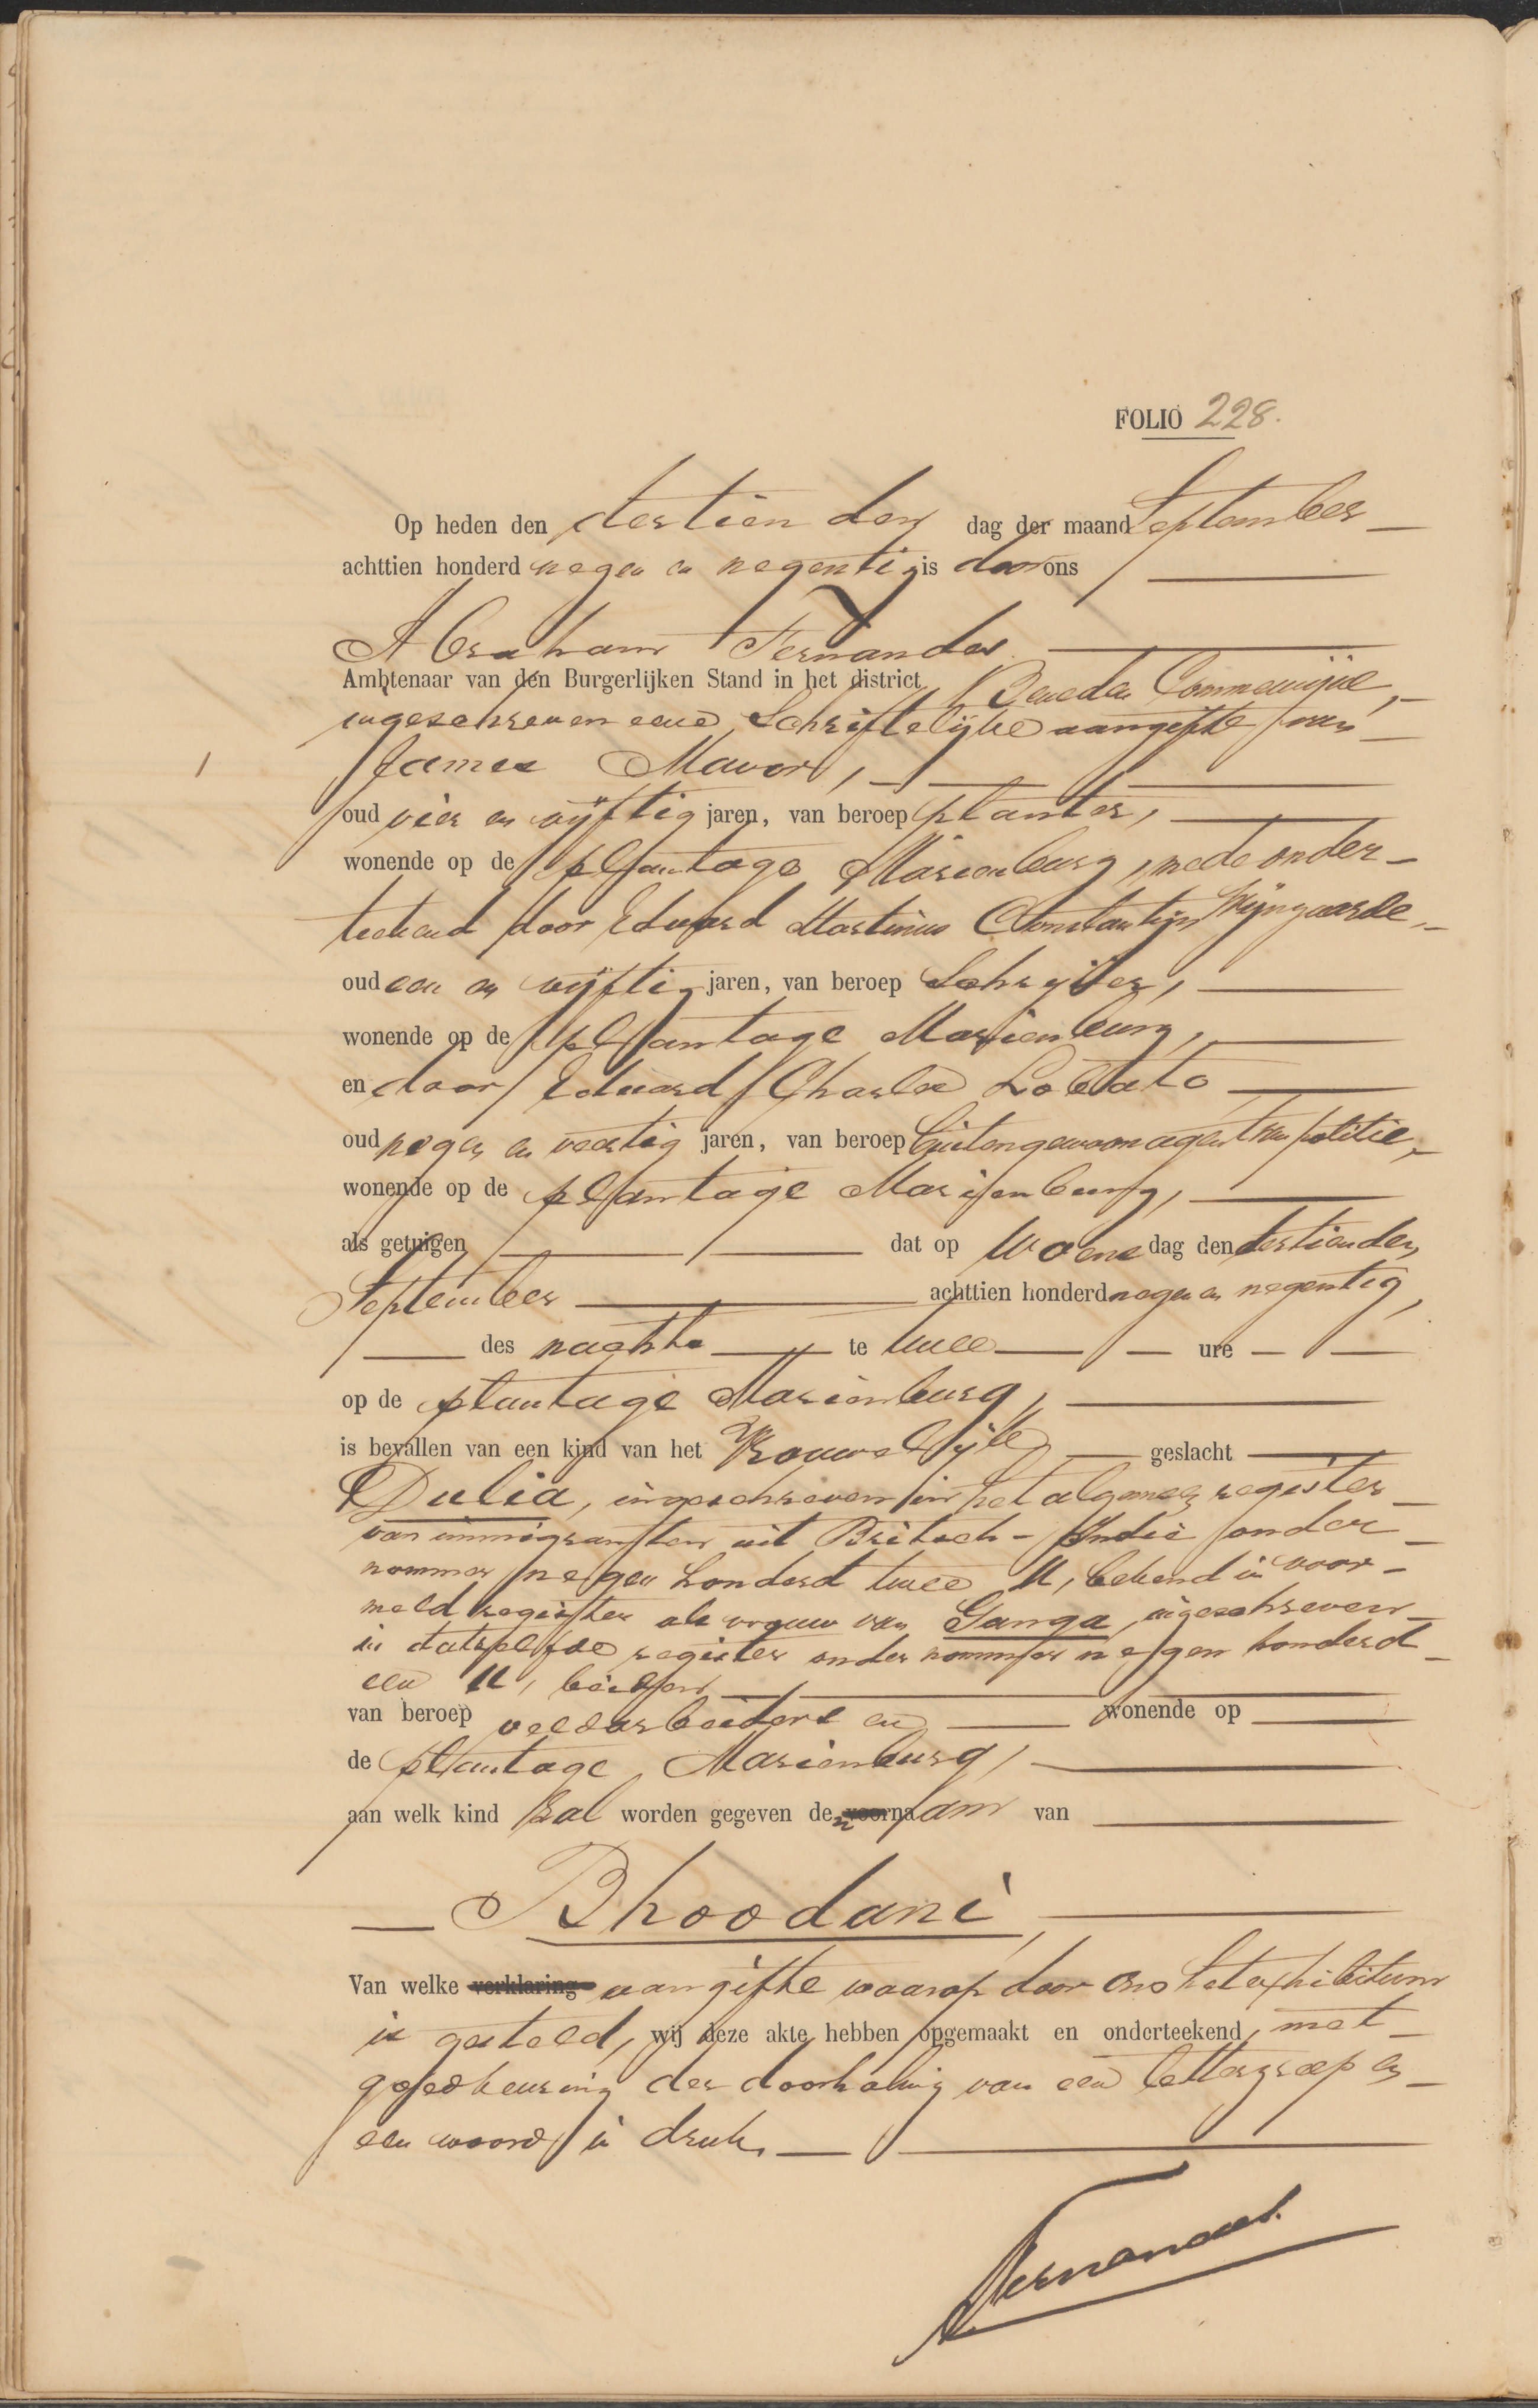 FOLIO 228.
Op heden den dertienden dag der maand September
achttien honderd negen en negentig is door ons
Abraham Fernandes
Ambtenaar van den Burgerlijken Stand in het district Beneden Commewijne,
ingeschreven eene Schriftelijke aangifte van
James Mavor,
oud vier en vijftig jaren, van beroep planter,
wonende op de plantage Marienburg, mede onder-
teekend door Eduard Martinus Constantijn Wijngaarde,
oud een en vijftig jaren, van beroep Schrijver,
wonende op de plantage Marienburg,
en door Eduard Charles Lobato
oud negen en veertig jaren, van beroep buitengewoon agent van politie,
wonende op de plantage Marienburg,
als getuigen dat op Woensdag den dertienden
September achttien honderd negen en negentig,
des nachts te twee ure
op de plantage Marienburg,
is bevallen van een kind van het Vrouwelijk geslacht
Dulia, ingeschreven in het algemeen register
van immigranten uit Britsch-Indie onder
nommer negen honderd twee U, bekend in voor-
meld register als vrouw van Ganga, ingeschreven
in datzelfde register onder nommer negen honderd
een U, beiden
van beroep veldarbeiders en wonende op
de plantage Marienburg,
aan welk kind zal worden gegeven den voornaam van
Bhoodani,
Van welke verklaring aangifte waarop door ons het exhibitum
is gesteld, wij deze akte hebben opgemaakt en onderteekend, met
goedkeuring der doorhaling van een lettergreep en
een woord in druk.
Fernandes.